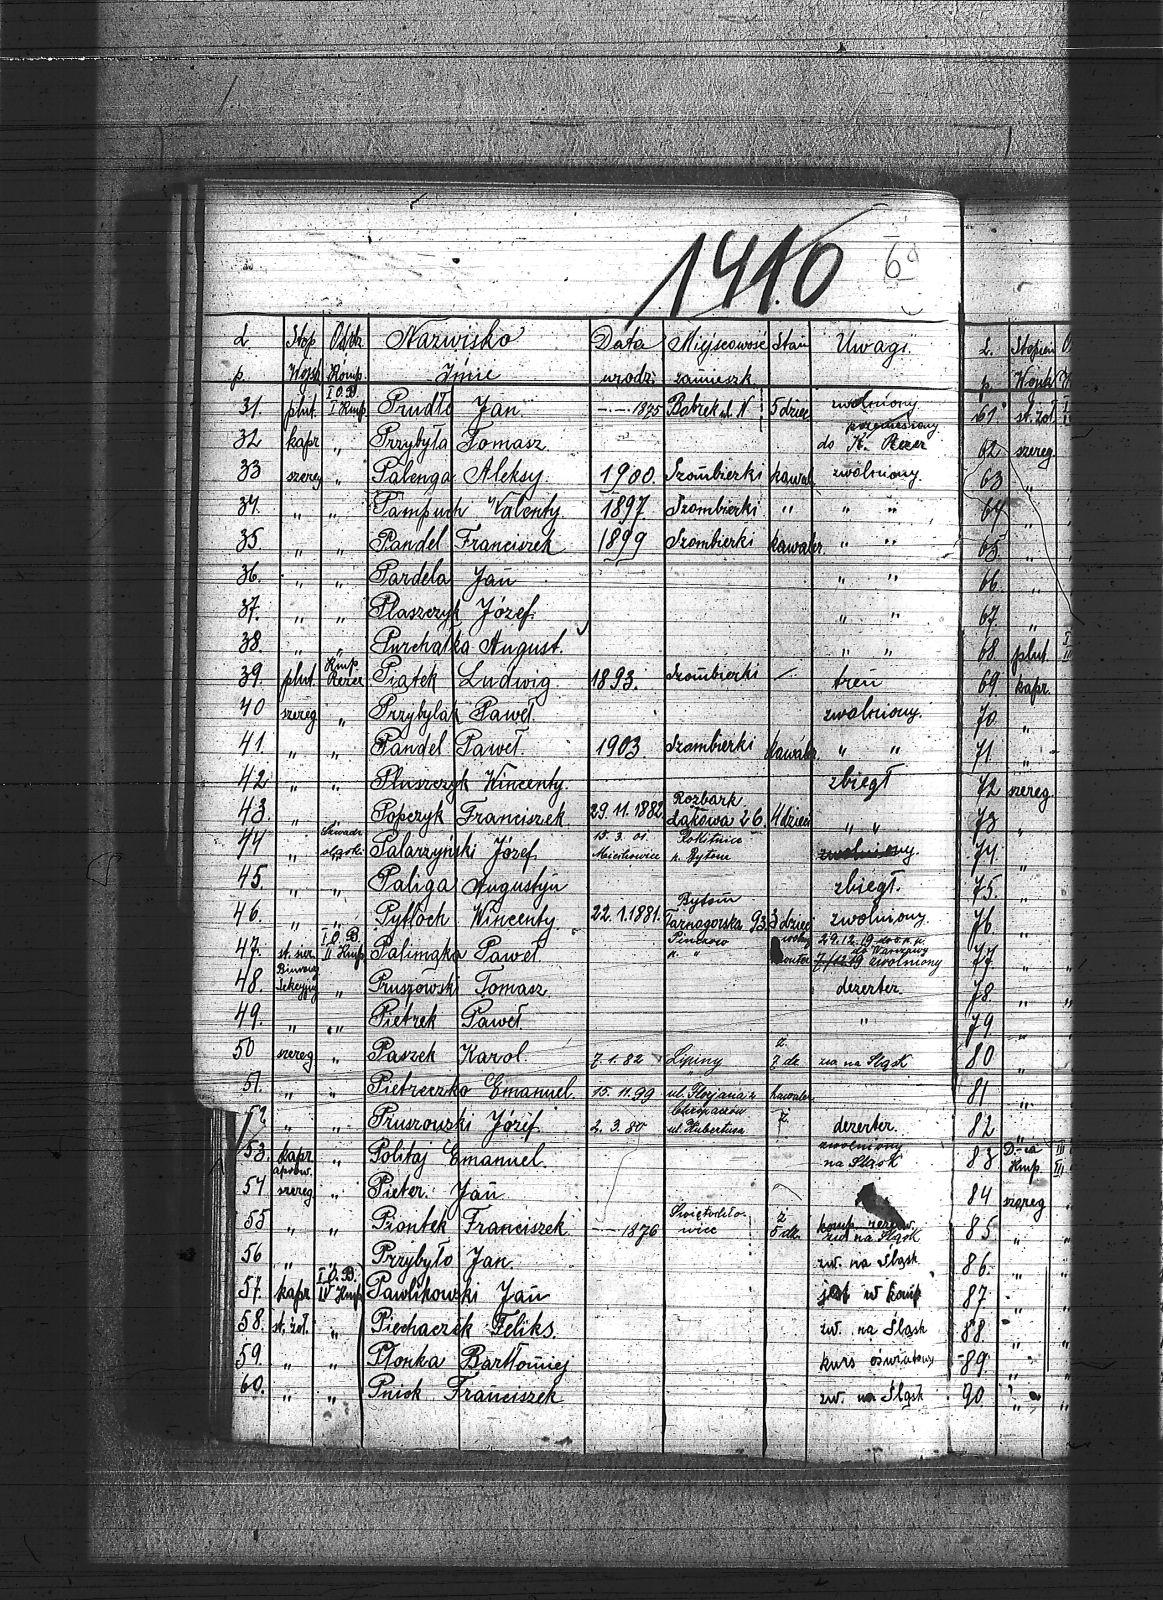 1410 6a
L. p. Stop. Wojsk Oddz Komp. Nazwisko Imie Data urodz. Miejscowość zamieszk. Stan Uwagi.
31. plut. I O.B. I Kmp. Prudło Jan —·— 1875 Bobrek ul. N 5 dziec zwolniony
32 kapr „ Przybyła Tomasz. przeniesiony do K. Rezer
33 szereg „ Palenga Aleksy. 1900. Szombierki kawal. zwolniony.
34. „ „ Pampuch Walenty. 1897. Szombierki „ „ „
35. „ „ Pandel Franciszek 1899 Szombierki kawaler. „ „
36. „ „ Pardela Jan „ „
37. „ „ Plaszczyk Józef. „ „
38. „ „ Purchałka August. „ „
39. plut. Kmp. Rezer Piątek Ludwig 1893. Szombierki — tren
40 szereg „ Przybylak Paweł. zwolniony.
41. „ „ Pandel Paweł. 1903. Szombierki kawaler. „ „
42. „ „ Pluszczyk Wincenty. zbiegł
43. „ „ Popczyk Franciszek. 29.11.1882. Rozbark Łąkowa 26. 4 dzieci „ „
44 „ Szwadr. śląsk. Palarzyński Józef. 15.3.01. Miechowice Rokitnice p. Bytom zwolniony.
45 „ „ Paliga Augustyn zbiegł.
46. „ „ Pytloch Wincenty. 22.1.1881. Bytom Tarnogorska 93. 3 dzieci zwolniony
47. st. sier. I O.B. II Kmp. Palimąka Paweł Pinczów 29.12.19 do Warszawy 7/12.19 zwolniony
48. Sekcyjny „ Pruszowski Tomasz. dezerter.
49. „ „ Pietrek Paweł „
50 szereg „ Paszek Karol. 7.1.82 Lipiny ż. 7 dz. zw na Śląsk
51. „ „ Pietreczko Emanuel. 15.11.99 ul. Florjana 2 kawaler.
52. „ „ Pruszowski Józef. 2.3.80 Chropaczów ul. Hubertusa ż. dezerter.
53. kapr. aprow. „ Politaj Emanuel. zwolniony na Śląsk
54 szereg „ Pieter. Jan
55 „ „ Piontek Franciszek —·— 1876 Świętochłowice ż 5 dz. komp. rezerw. zw. na Śląsk
56 „ Przybyło Jan. zw. na Śląsk
57. kapr. I O.B. IV Kmp. Pawlikowski Jan jest w komp
58. st. żoł. „ Piechaczek Feliks. zw. na Śląsk
59. „ „ Płonka Bartłomiej kurs oświatowy
60. „ „ Pniok Franciszek zw. na Śląsk
L. p. Stopień Wojsk
61. st. żoł
62 szereg.
63 „
64 „
65 „
66. „
67. „
68 plut.
69. kapr.
70. „
71. „
72 szereg.
73 „
74. „
75. „
76. „
77. „
78. „
79. „
80 „
81 „
82 „
83 Kmp.
84 szereg
85. „
86. „
87 „
88. „
89. „
90. „